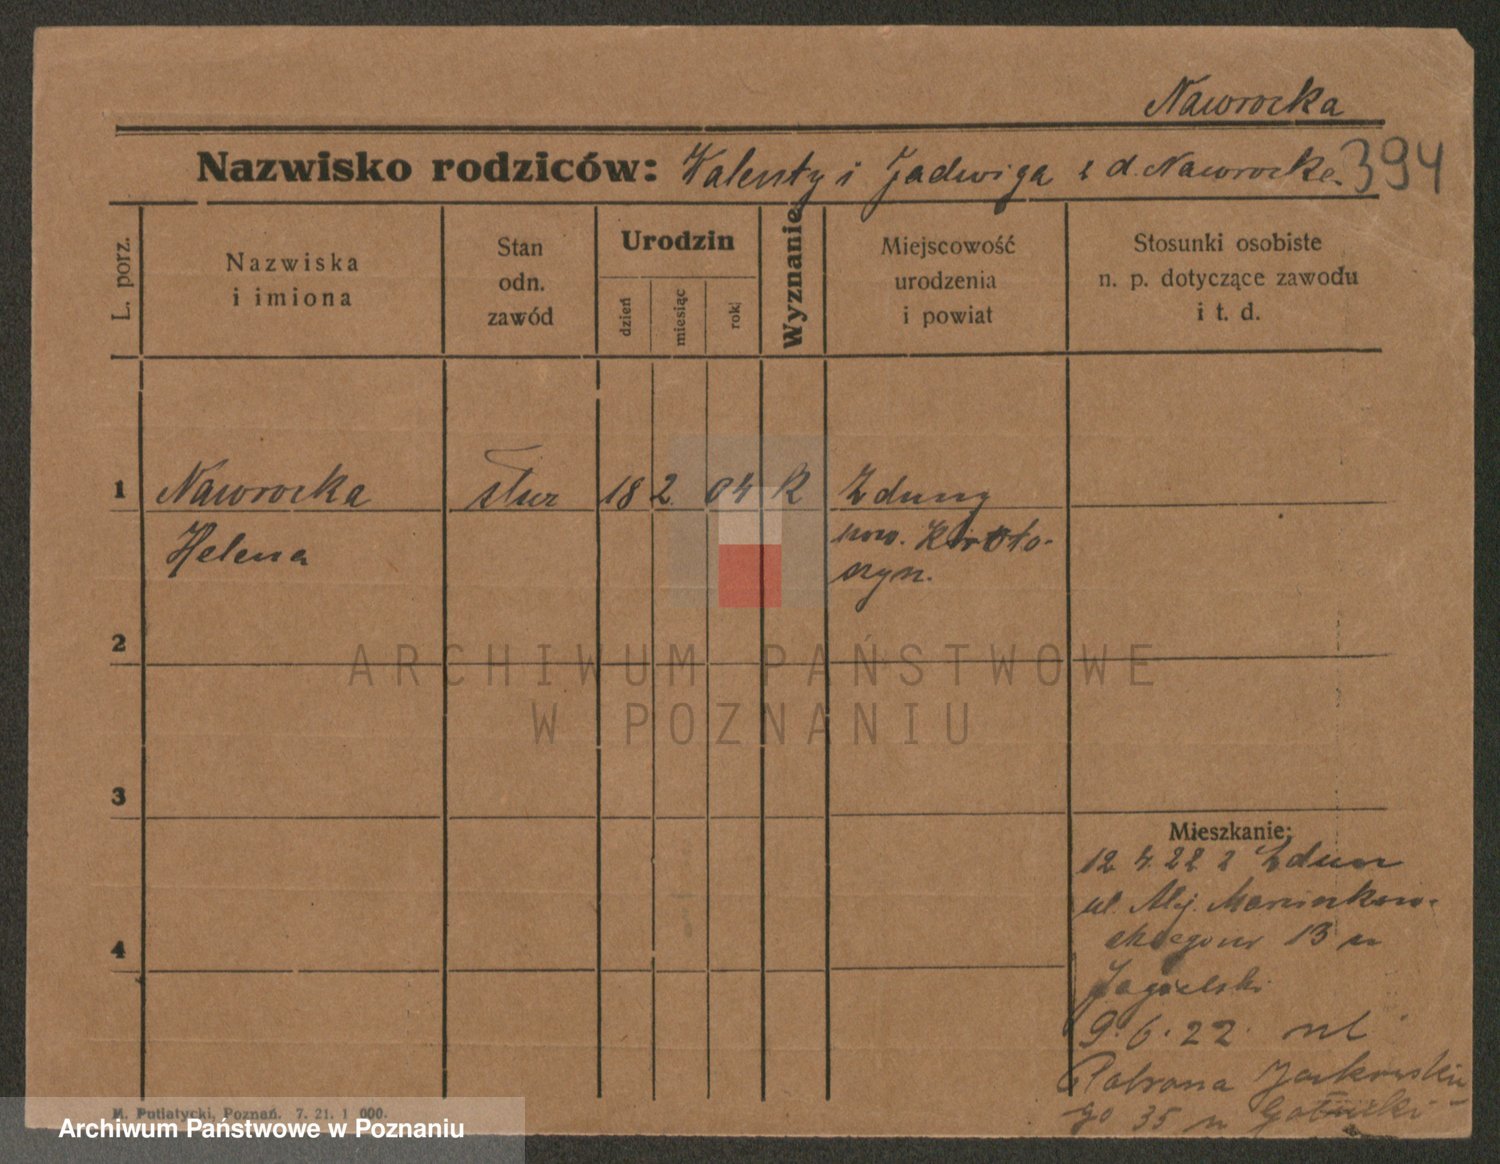 Nawrocka
Nazwisko rodziców: Walenty i Jadwiga z d. Nawrocka 394
L. porz.
Nazwiska
i imiona
Stan
odn.
zawód
Urodzin
dzień
miesiąc
rok
Wyznanie
Miejscowość
urodzenia
i powiat
Stosunki osobiste
n. p. dotyczące zawodu
i t. d.
1 Nawrocka służ 18 2 04 K Zduny
Helena
pow. Kroto-
szyn.
2
ARCHIWUM PAŃSTWOWE
W POZNANIU
3
Mieszkanie:
12 4 22 z Zdun
ul. Alej. Marcinkow-
skiego nr 13 u
Jagielski
9. 6. 22 ul
Patrona Jackowskie
go 35 u
4
M. Putiatycki, Poznań. 7. 21. 1 000.
Archiwum Państwowe w Poznaniu